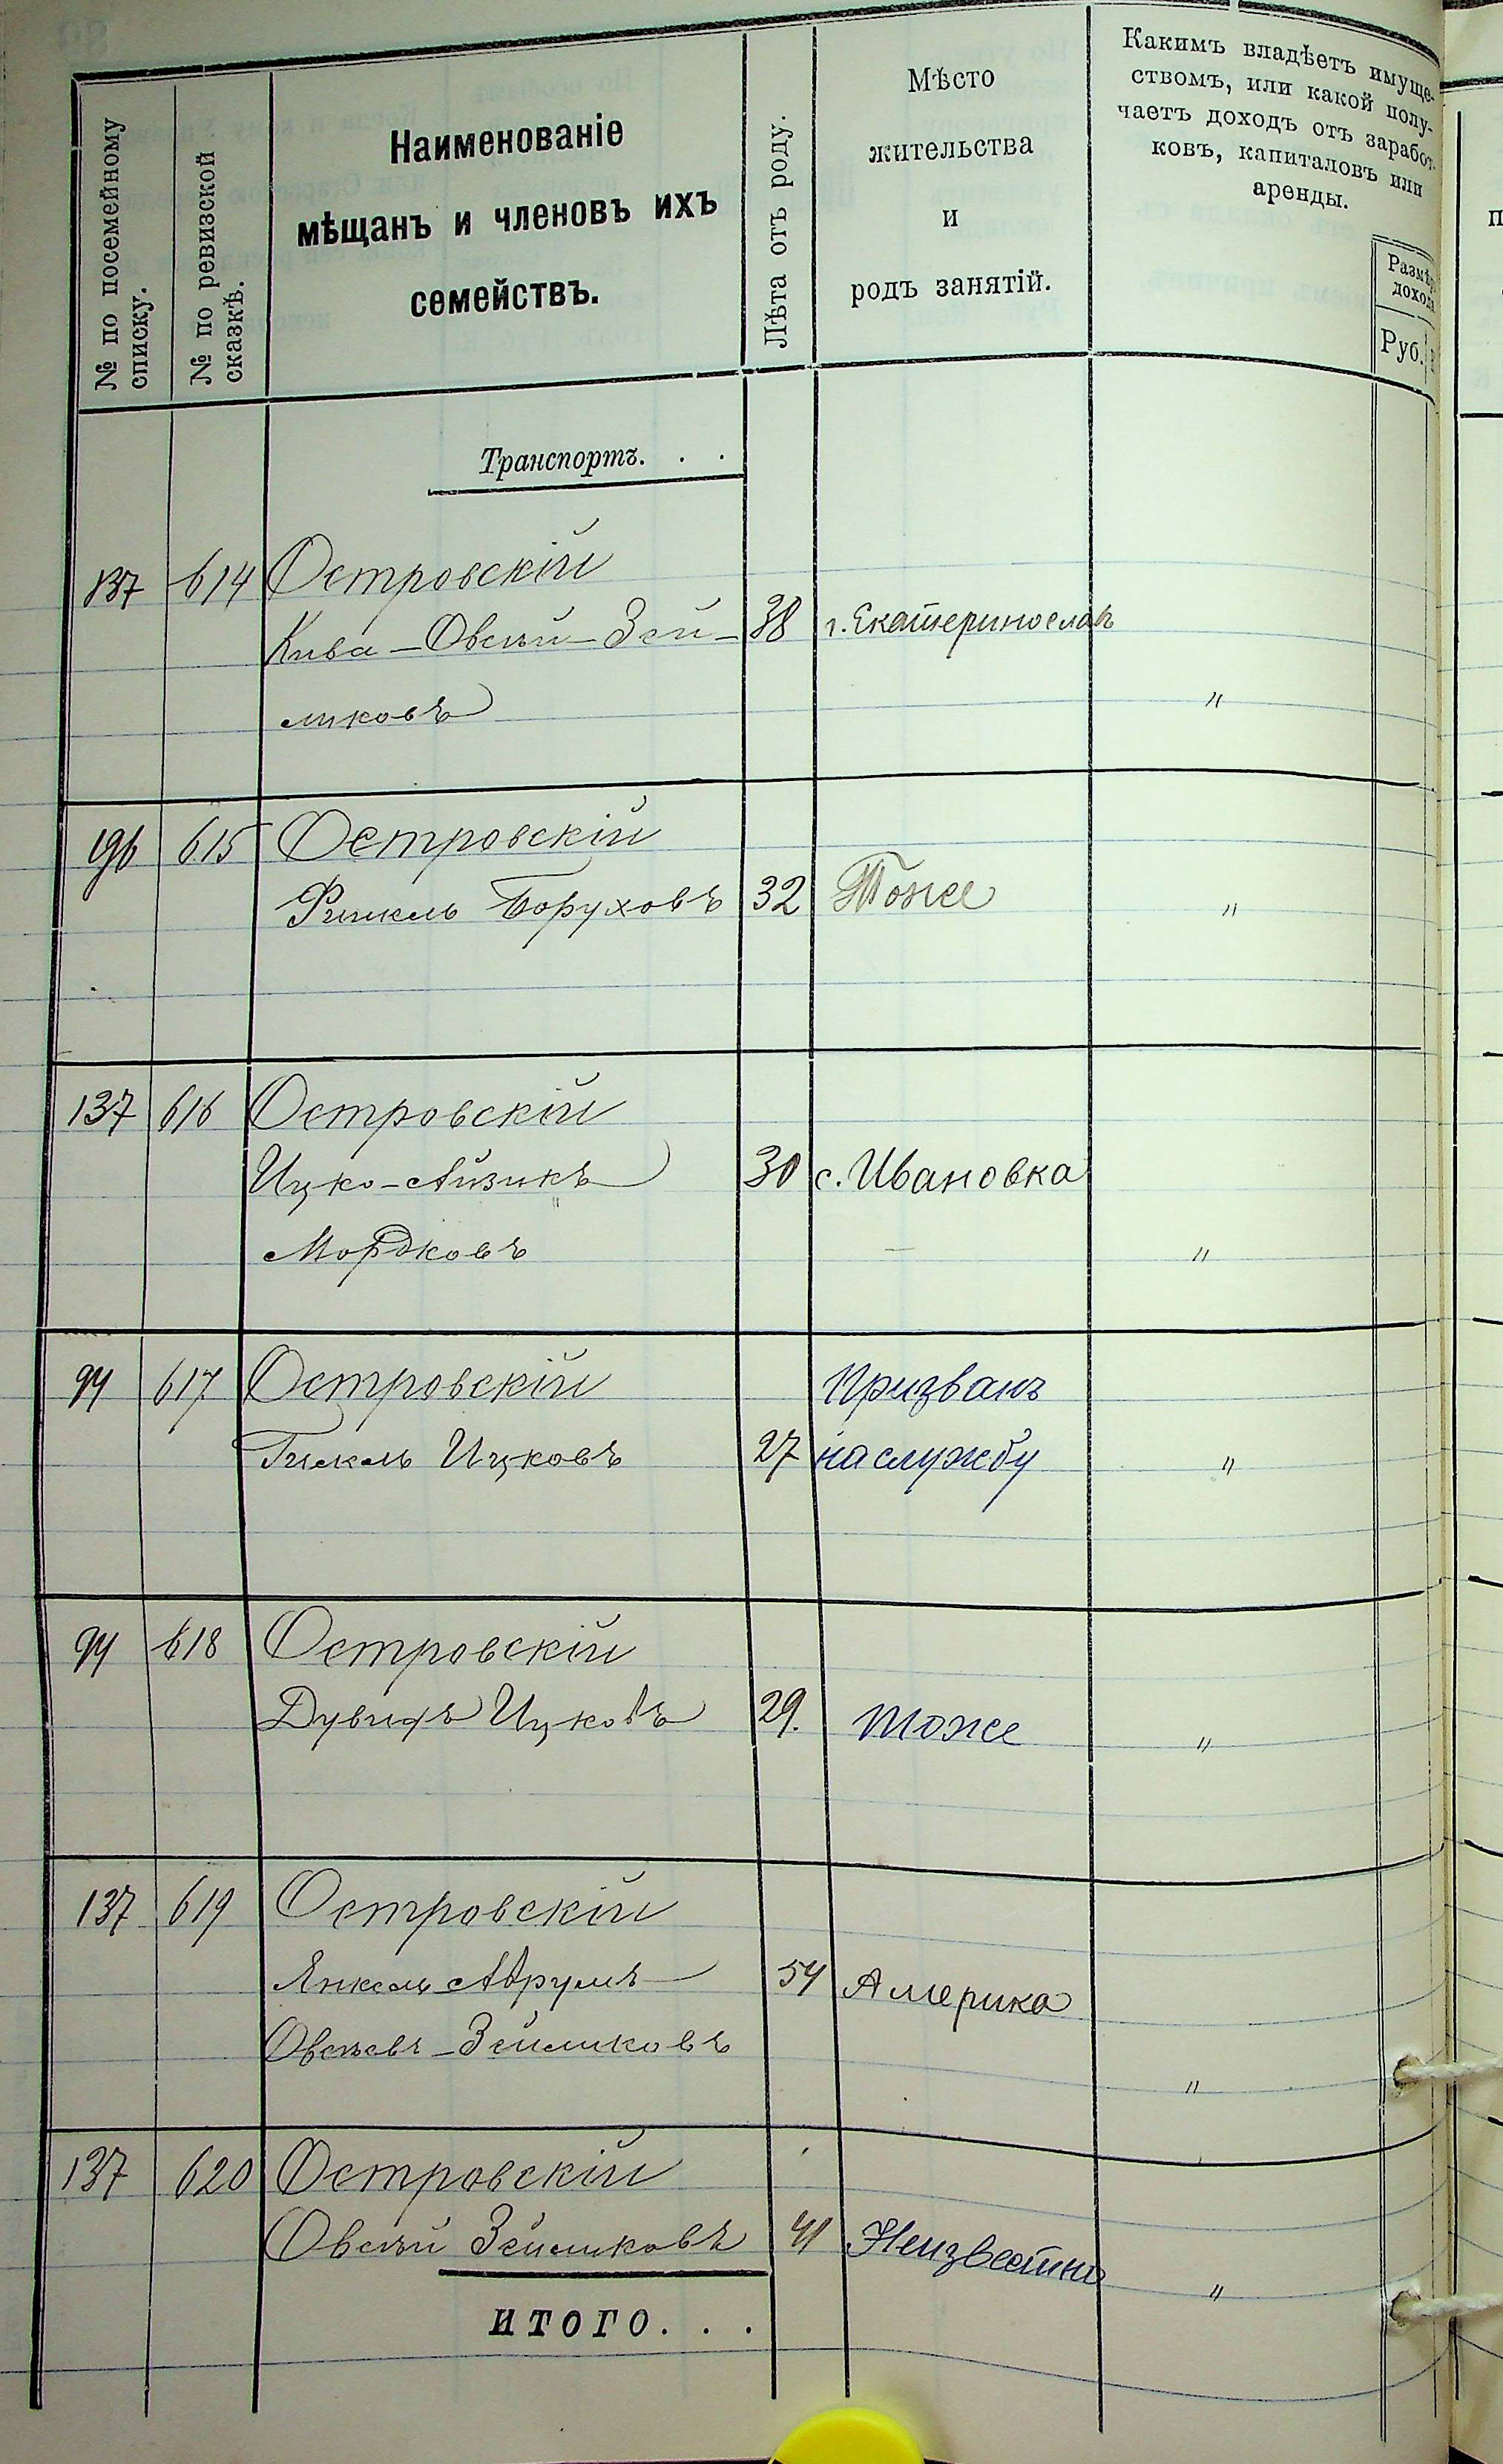 № по посемейному
списку.
№ по ревизской
сказкѣ.
Наименованіе
мѣщанъ и членовъ ихъ
семействъ.
Лѣта отъ роду.
Мѣсто
жительства
и
родъ занятій.
Какимъ владѣетъ имуще-
ствомъ, или какой полу-
чаетъ доходъ отъ заработ-
ковъ, капиталовъ или
аренды.
Размѣръ
дохода
Руб.
Транспортъ. . .
137 614 Островскій
Кива-Овсѣй-Зей- 38 г. Екатеринослав
ликовъ "
196 615 Островскій
Боруховъ 32 Тоже "
137 616 Островскій
Ицко-Айзикъ 30 с. Ивановка
Мордковъ "
94 617 Островскій Призванъ
Ицковъ 27 на службу "
94 618 Островскій
Дувидъ Ицковъ 29. тоже "
137 619 Островскій
Янкель Абрумъ 54 Америка
Овсѣевъ-Зейликовъ "
137 620 Островскій
Овсѣй Зейликовъ 41 Неизвестно "
ИТОГО. . .